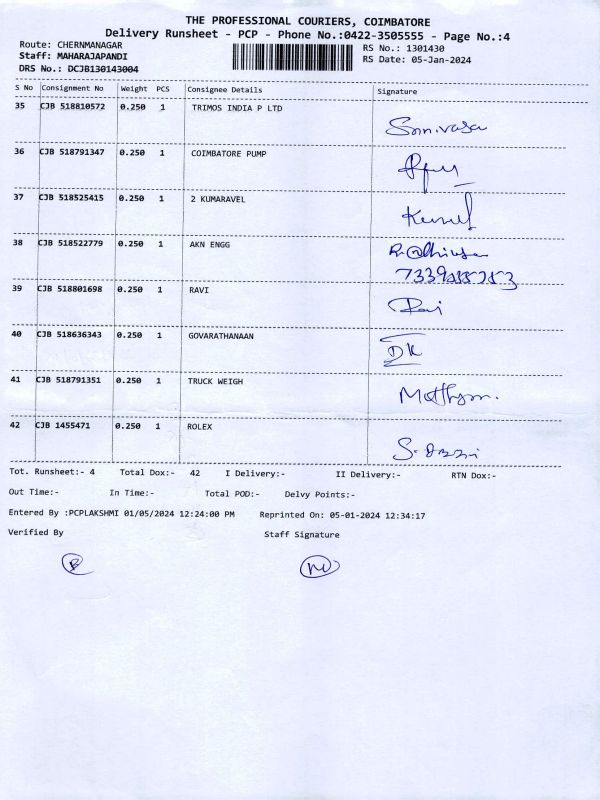 THE PROFESSIONAL COURIERS, COIMBATORE
Delivery Runsheet - PCP - Phone No.:0422-3505555 - Page No.:4
Route: CHERNMANAGAR RS No.: 1301430
Staff: MAHARAJAPANDI RS Date: 05-Jan-2024
DRS No.: DCJB130143004
S No Consignment No Weight PCS Consignee Details Signature
35 CJB 518810572 0.250 1 TRIMOS INDIA P LTD
36 CJB 518791347 0.250 1 COIMBATORE PUMP
37 CJB 518525415 0.250 1 2 KUMARAVEL
38 CJB 518522779 0.250 1 AKN ENGG
39 CJB 518801698 0.250 1 RAVI Ravi
40 CJB 518636343 0.250 1 GOVARATHANAAN DK
41 CJB 518791351 0.250 1 TRUCK WEIGH
42 CJB 1455471 0.250 1 ROLEX
Tot. Runsheet:- 4 Total Dox:- 42 I Delivery:- II Delivery:- RTN Dox:-
Out Time:- In Time:- Total POD:- Delvy Points:-
Entered By :PCPLAKSHMI 01/05/2024 12:24:00 PM Reprinted On: 05-01-2024 12:34:17
Verified By Staff Signature